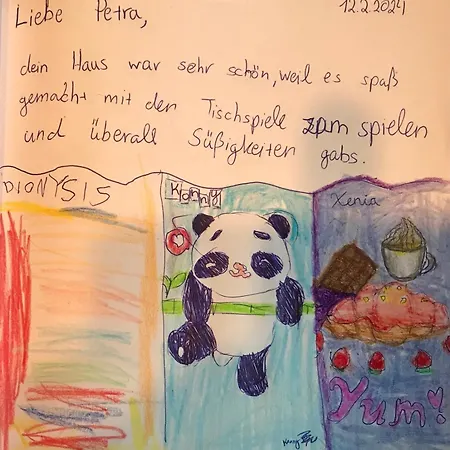 Liebe Petra,
12.2.2024
dein Haus war sehr schön, weil es spaß
gemacht mit der Tischspiele zum spielen
und überall Süßigkeiten gabs.
DIONYSIS
Konny
Xenia
Yum!